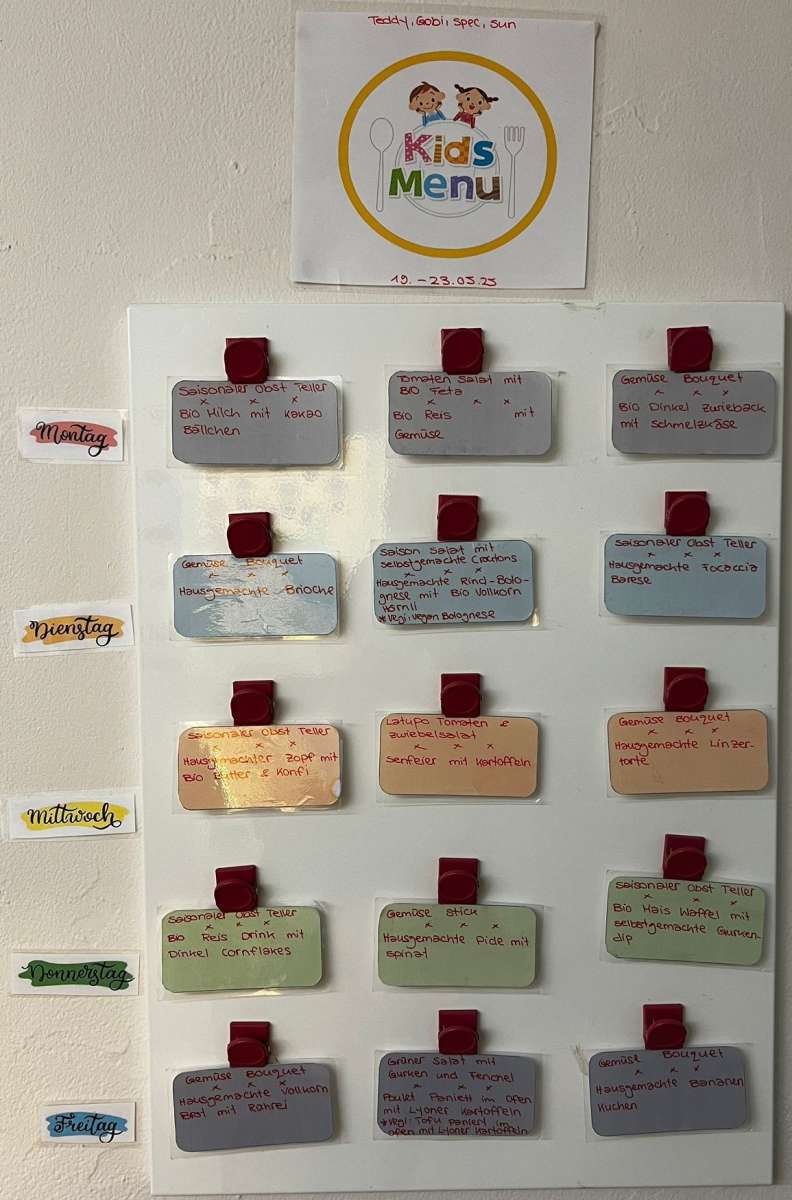 Teddy, Gobi, spec, sun
Kids
Menu
19. - 23.05.25
Montag
Saisonaler Obst Teller
x x x
Bio Milch mit Kakao
Bällchen
Tomaten Salat mit
Bio Feta
x x x
Bio Reis mit
Gemüse
Gemüse Bouquet
x x x
Bio Dinkel Zwieback
mit Schmelzkäse
Dienstag
Gemüse Bouquet
x x x
Hausgemachte Brioche
Saison Salat mit
selbstgemachte Croutons
x x x
Hausgemachte Rind-Bolo-
gnese mit Bio Vollkorn
Hörnli
*Vegi: vegan Bolognese
Saisonaler Obst Teller
x x x
Hausgemachte Focaccia
Barese
Mittwoch
Saisonaler Obst Teller
x x x
Hausgemachter Zopf mit
Bio Butter & Konfi
Latupo Tomaten &
Zwiebelsalat
x x x
Senfeier mit Kartoffeln
Gemüse Bouquet
x x x
Hausgemachte Linzer-
torte
Donnerstag
Saisonaler Obst Teller
x x x
Bio Reis Drink mit
Dinkel Cornflakes
Gemüse Stick
x x x
Hausgemachte Pide mit
Spinat
Saisonaler Obst Teller
x x x
Bio Mais Waffel mit
selbstgemachte Gurken-
dip
Freitag
Gemüse Bouquet
x x x
Hausgemachte Vollkorn
Brot mit Rührei
Grüner Salat mit
Gurken und Fenchel
x x x
Poulet Paniert im Ofen
mit Lyoner Kartoffeln
*Vegi: Tofu paniert im
Ofen mit Lyoner Kartoffeln
Gemüse Bouquet
x x x
Hausgemachte Bananen
Kuchen